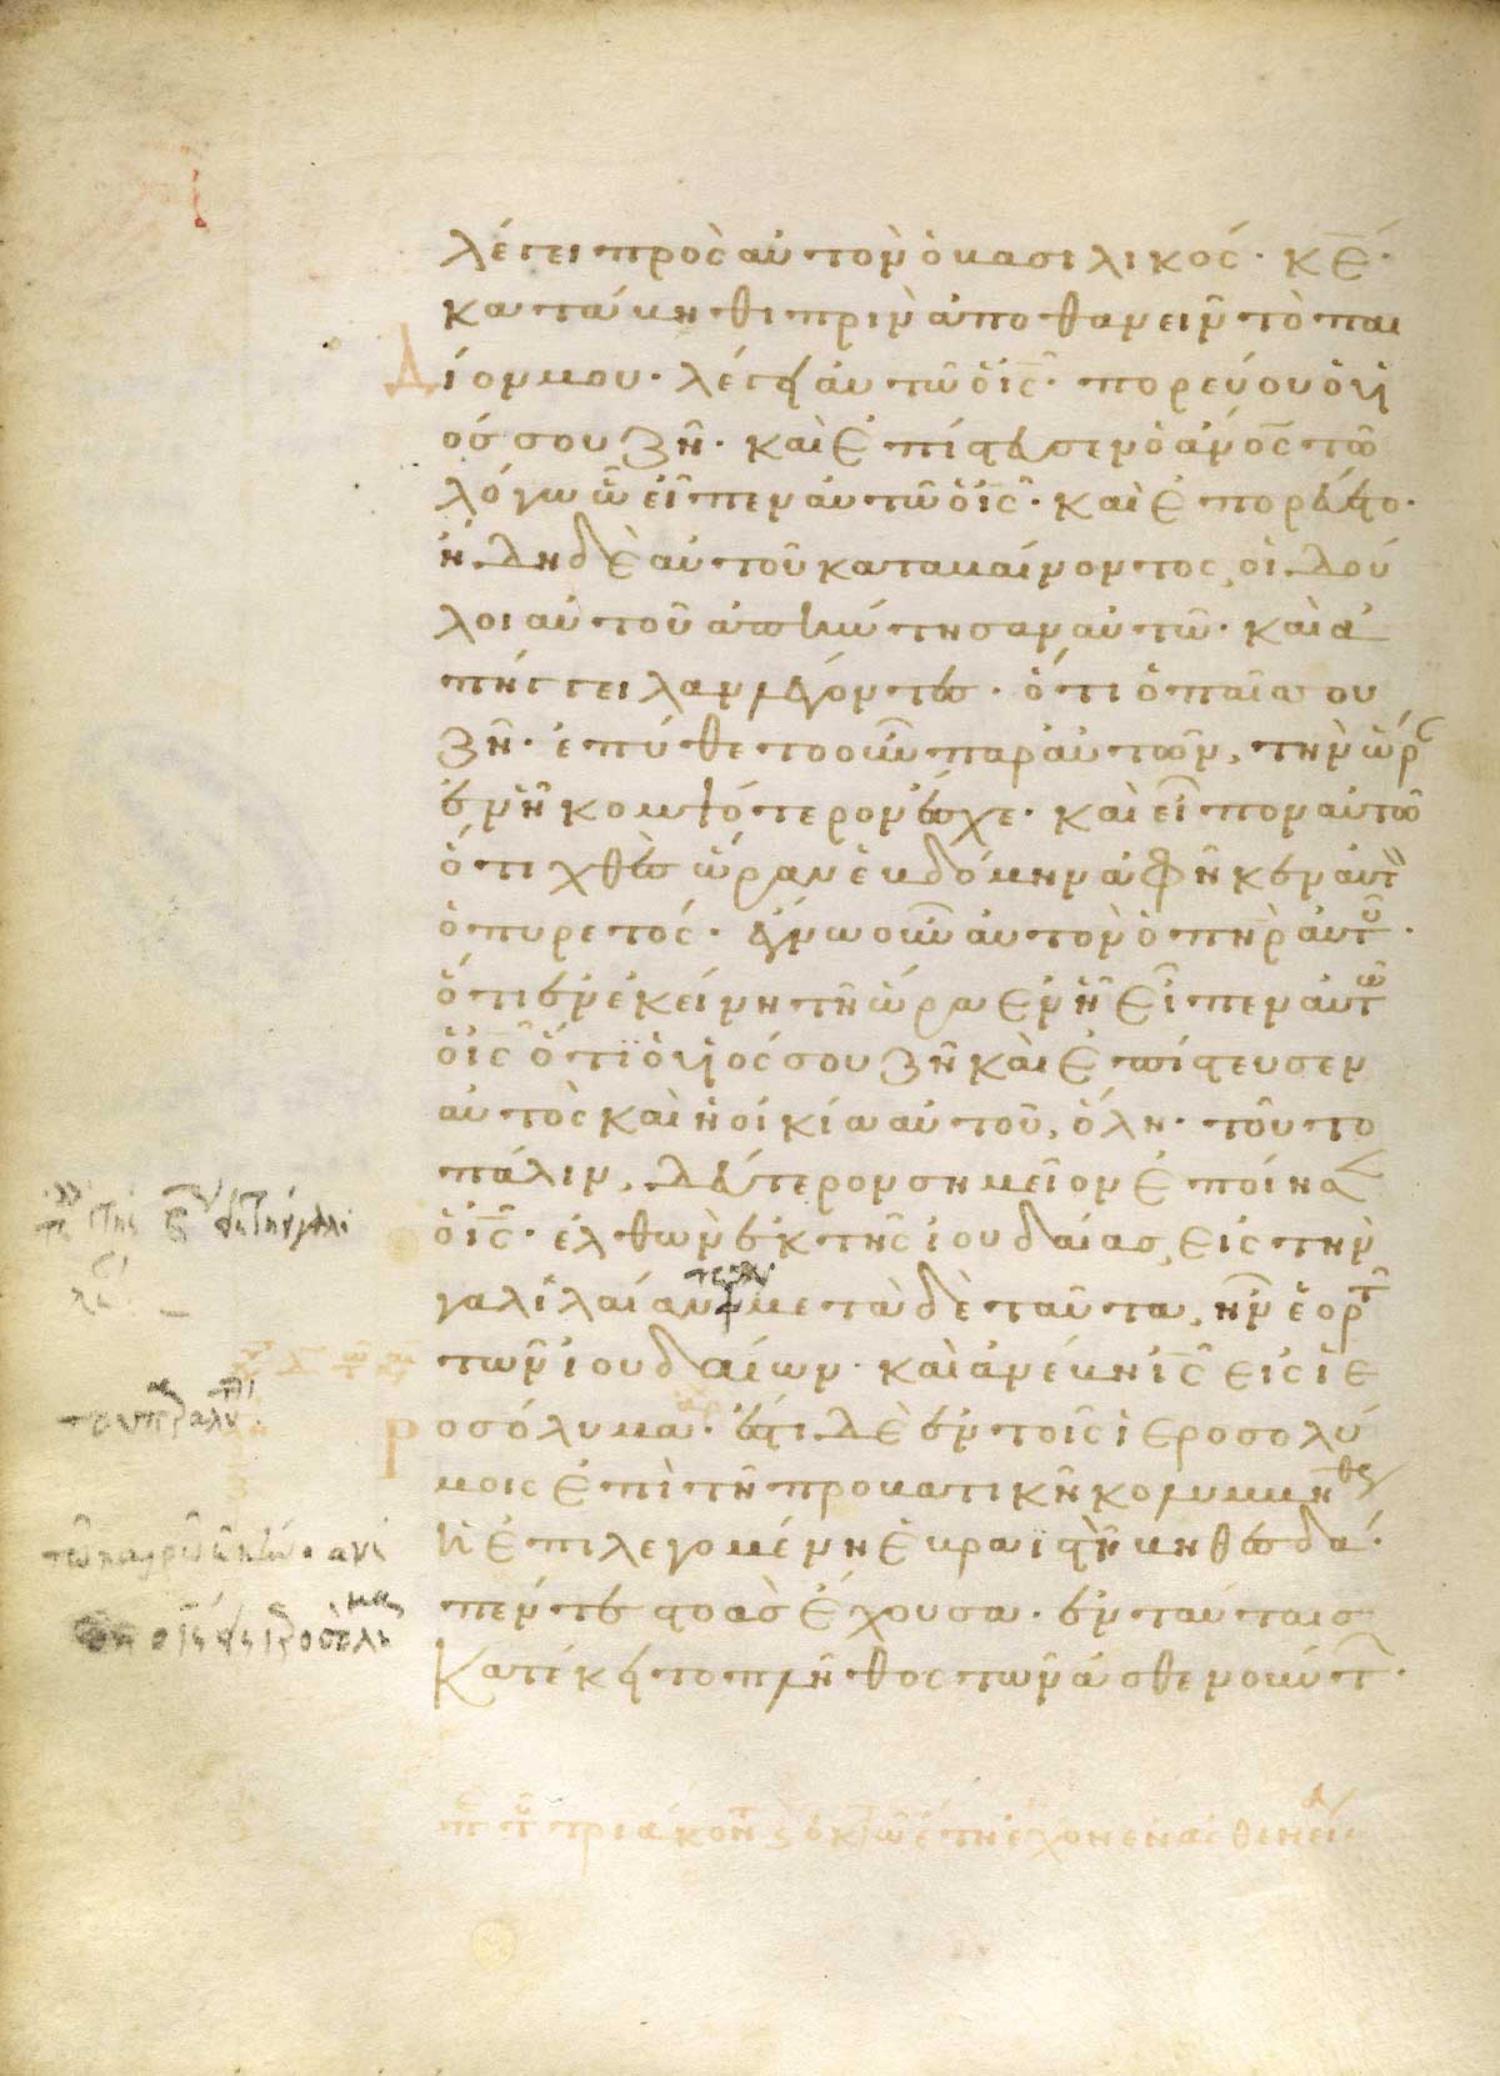 λέγει πρὸς αὐτὸν ὁ βασιλικός· κ̅ε̅·
κατάβηθι πρὶν ἀποθανεῖν τὸ παι
δίον μου· λέγει αὐτῶ ὁ ι̅ς̅· πορεύου ὁ υἱ
ός σου ζῆ· καὶ ἐπίστευσεν ὁ ἄν̅ο̅ς̅ τῶ
λόγω ὧ εἶπεν αὐτῶ ὁ ι̅ς̅· καὶ ἐπορεύετο·
ἤδη δὲ αὐτοῦ καταβαίνοντος, οἱ δοῦ
λοι αὐτοῦ ἀπήντησαν αὐτῶ· καὶ ἀ
πήγγειλαν λέγοντες· ὅτι ὁ παῖς σου
ζῆ· ἐπύθετο οὖν παρ αὐτῶν, τὴν ὥρ
ἐν ἧ κομψότερον ἔσχε· καὶ εἶπον αὐτῶ
ὅτι χθὲς ὥραν ἑβδόμην ἀφῆκεν αὐτ
ὁ πυρετός· ἔγνω οὖν αὐτὸν ὁ π̅η̅ρ̅ αὐτοῦ·
ὅτι ἐν ἐκείνη τῆ ὥρα ἐν ἧ εἶπεν αὐτῶ
ὁ ι̅ς̅ ὅτι ὁ υἱός σου ζῆ καὶ ἐπίστευσεν
αὐτὸς καὶ ἡ οἰκία αὐτοῦ, ὅλη· τοῦτο
πάλιν, δεύτερον σημεῖον ἐποίησ
ὁ ι̅ς̅· ἐλθὼν ἐκ τῆς ἰουδαίας, εἰς τὴν
γαλιλαίαν μετὰ δὲ ταῦτα, ἦν ἑορτὴ
τῶν ἰουδαίων· καὶ ἀνέβη ι̅ς̅ εἰς ἱε
ροσόλυμα· ἔστι δὲ ἐν τοῖς ἱεροσολύ
μοις ἐπὶ τῆ προβατικῆ κολυμβήθρ
ἡ ἐπιλεγομένη ἑβραϊστὶ βηθεσδά·
πέντε στοὰς ἔχουσα· ἐν ταύταις
κατέκειτο πλῆθος τῶν ἀσθενούντ·